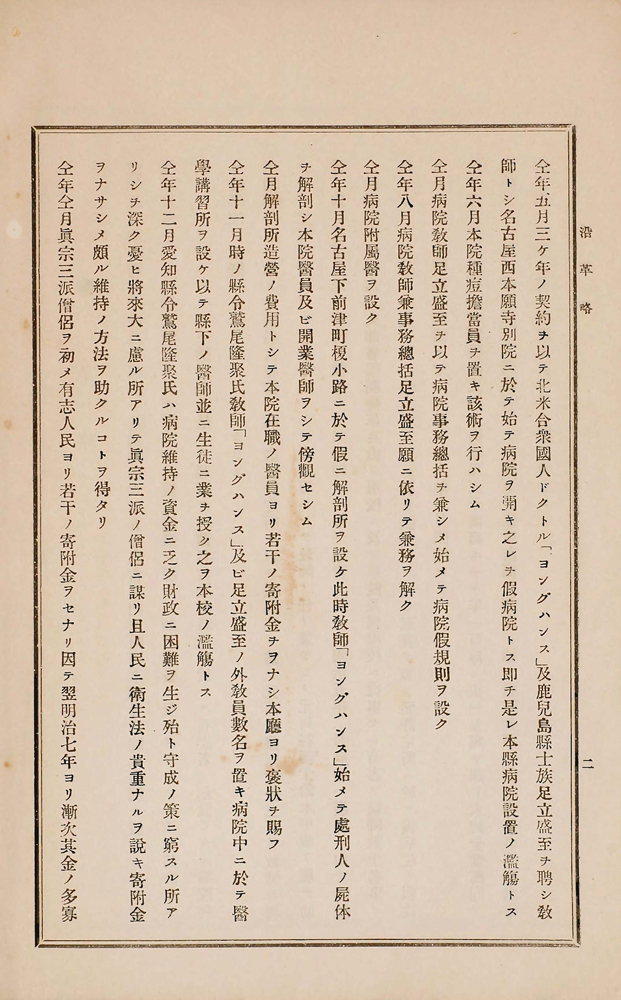 沿革略
二
仝年五月三ケ年ノ契約ヲ以テ北米合衆國人ドクトル「ヨングハンス」及鹿兒島縣士族足立盛至ヲ聘シ敎
師トシ名古屋西本願寺別院ニ於テ始テ病院ヲ開キ之レヲ假病院トス卽チ是レ本縣病院設置ノ濫觴トス
仝年六月本院種痘擔當員ヲ置キ該術ヲ行ハシム
仝月病院敎師足立盛至ヲ以テ病院事務總括ヲ兼シメ始メテ病院假規則ヲ設ク
仝年八月病院敎師兼事務總括足立盛至願ニ依リテ兼務ヲ解ク
仝月病院附属醫ヲ設ク
仝年十月名古屋下前津町榎小路ニ於テ假ニ解剖所ヲ設ケ此時敎師「ヨングハンス」始メテ處刑人ノ屍体
ヲ解剖シ本院醫員及ビ開業醫師ヲシテ傍觀セシム
仝月解剖所造營ノ費用トシテ本院在職ノ醫員ヨリ若干ノ寄附金ヲヲナシ本廳ヨリ褒狀ヲ賜フ
仝年十一月時ノ縣令鷲尾隆聚氏敎師「ヨングハンス」及ビ足立盛至ノ外敎員數名ヲ置キ病院中ニ於テ醫
學講習所ヲ設ケ以テ縣下ノ醫師並ニ生徒ニ業ヲ授ク之ヲ本校ノ濫觴トス
仝年十二月愛知縣令鷲尾隆聚氏ハ病院維持ノ資金ニ乏ク財政ニ困難ヲ生ジ殆ト守成ノ策ニ窮スル所ア
リシヲ深ク憂ヒ將來大ニ慮ル所アリテ眞宗三派ノ僧侶ニ謀リ且人民ニ衛生法ノ貴重ナルヲ說キ寄附金
ヲナサシメ頗ル維持ノ方法ヲ助クルコトヲ得タリ
仝年仝月眞宗三派僧侶ヲ初メ有志人民ヨリ若干ノ寄附金ヲセナリ因テ翌明治七年ヨリ漸次其金ノ多寡